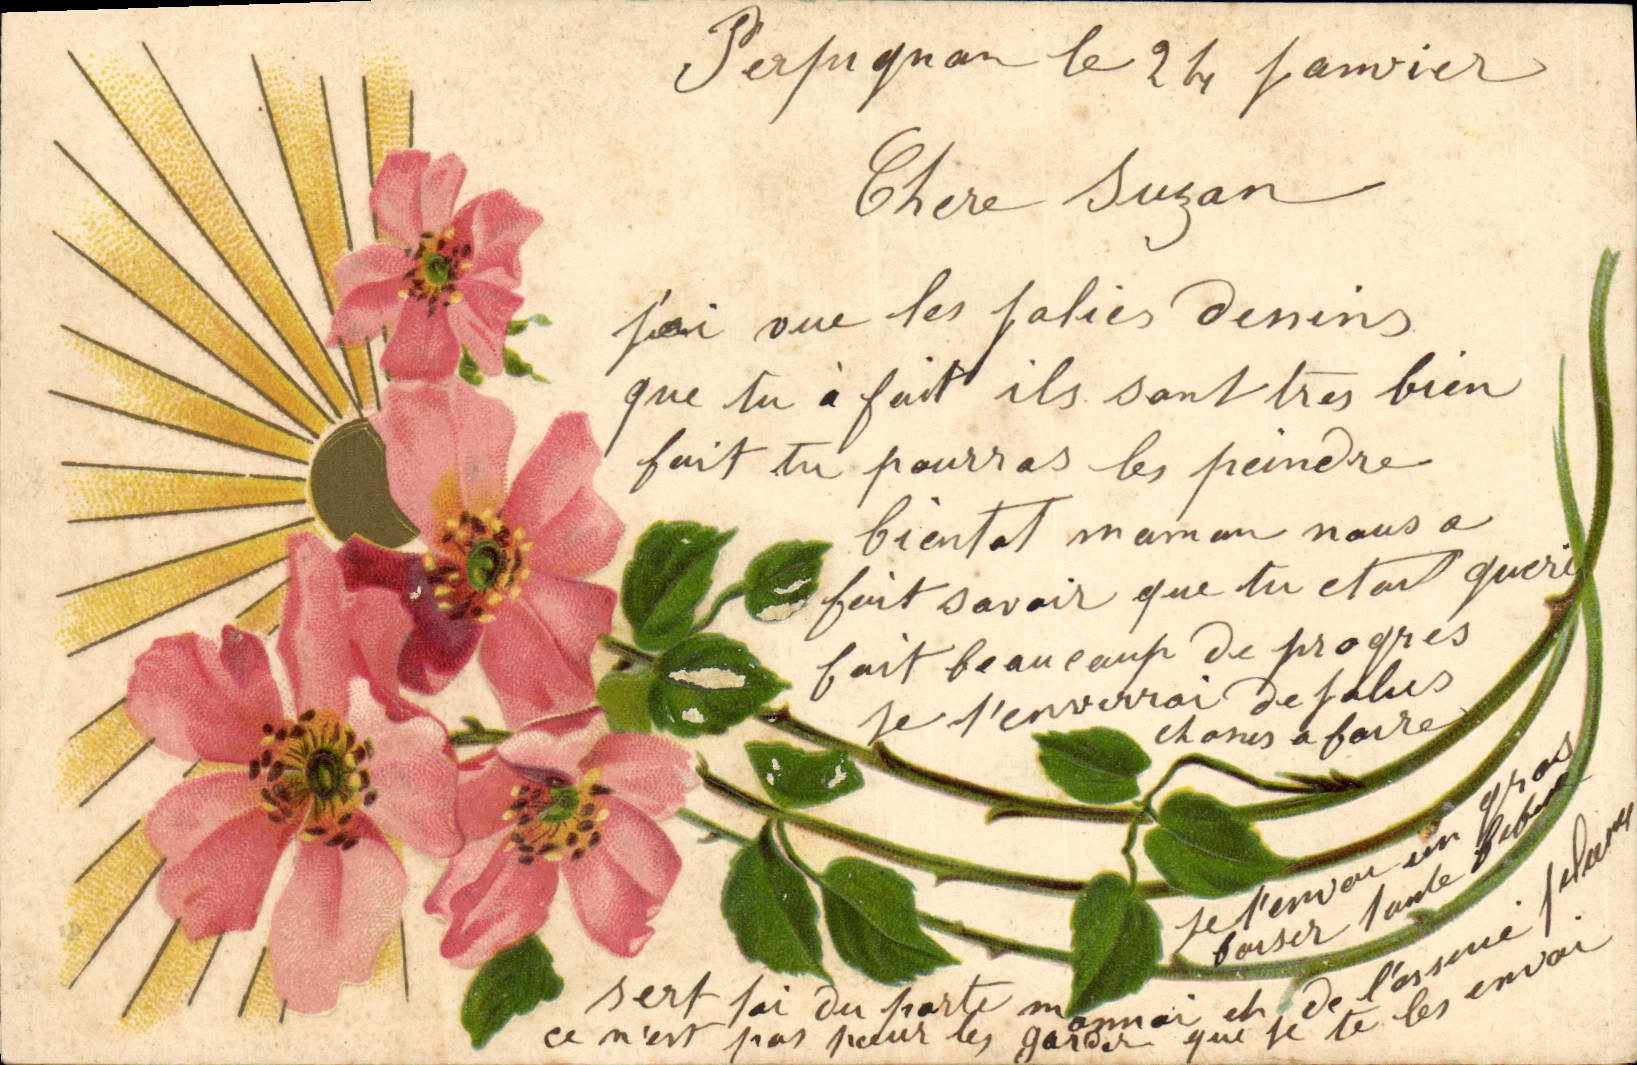 Perpignan le 24 janvier
Chere Suzan
j'ai vue les jolies dessins
que tu à fait ils sont tres bien
fait tu pourras les peindre
bientot maman nous a
fait savoir que tu etait gueri
fait beaucoup de progres
je t'enverrai de jolies
choses a faire
je t'envoi un gros
baiser tante
sert toi du porte monnai et de l'essuie plumes
ce n'est pas pour les garder que je te les envoi